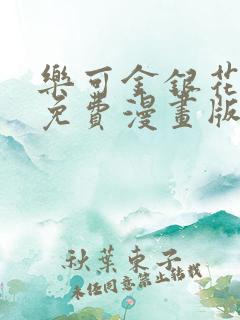 樂可金銀花
免費漫畫版
秋葉東子
未任同意禁止転載